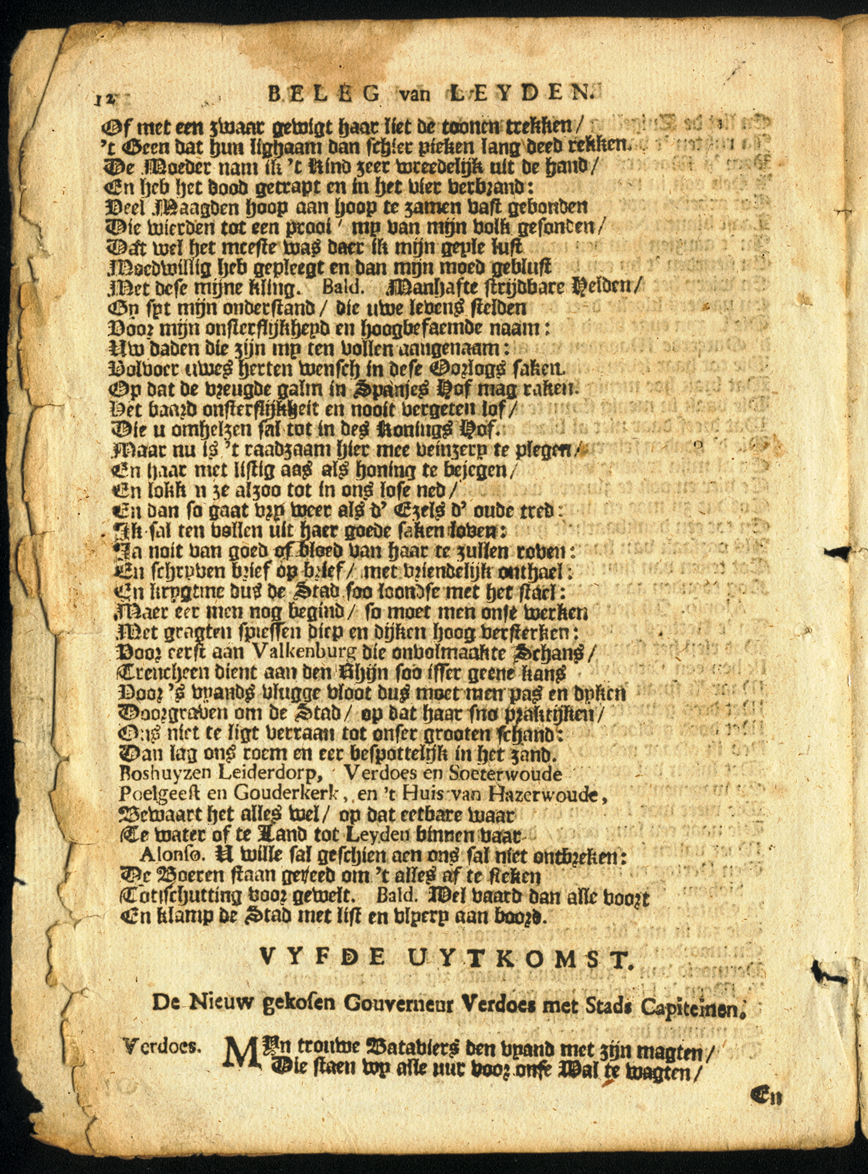 12 BELEG van LEYDEN.
Of met een zwaar gewigt haar liet de toonen trekken /
't Geen dat hun lighaam dan schier pieken lang deed rekken.
De Moeder nam ik 't Kind zeer wreedelijk uit de hand /
En heb het dood getrapt en in het vier verbrand:
Veel Maagden hoop aan hoop te zamen vast gebonden
Die wierden tot een prooi / my van mijn volk gesonden /
Dat wel het meeste was daer ik mijn geyle lust
Moedwillig heb gepleegt en dan mijn moed geblust
Met dese mijne kling. Bald. Manhafte strijdbare Helden /
Gy syt mijn onderstand / die uwe levens stelden
Voor mijn onsterflijkheyd en hoogbefaemde naam:
Uw daden die zijn my ten vollen aangenaam:
Volvoer uwes herten wensch in dese Oorlogs saken.
Op dat de vreugde galm in Spanjes Hof mag raken.
Het baard onsterflijkheit en nooit vergeten lof /
Die u omhelzen sal tot in des Konings Hof.
Maar nu is 't raadzaam hier mee veinzery te plegen /
En haar met listig aas als honing te bejegen /
En lokk n ze alzoo tot in ons lose ned /
En dan so gaat vry weer als d' Ezels d' oude tred:
Ik sal ten vollen uit haer goede saken loven:
Ja noit van goed of bloed van haar te zullen roven:
En schryven brief op brief / met vriendelijk onthael:
En krygtme dus de Stad soo loondse met het stael:
Maer eer men nog begind / so moet men onse werken
Met gragten spiessen diep en dijken hoog versterken:
Voor eerst aan Valkenburg die onvolmaakte Schans /
Trencheen dient aan den Rhijn soo isser geene kans
Voor 's vyands vlugge vloot dus moet men pas en dyken
Doorgraven om de Stad / op dat haar sno praktijken /
Ons niet te ligt verraan tot onser grooten schand:
Dan lag ons roem en eer bespottelijk in het zand.
Boshuyzen Leiderdorp, Verdoes en Soeterwoude
Poelgeest en Gouderkerk, en 't Huis van Hazerwoude,
Bewaart het alles wel / op dat eetbare waar
Te water of te Land tot Leyden binnen vaar
Alonso. U wille sal geschien aen ons sal niet ontbreken:
De Boeren staan gereed om 't alles af te steken
Tot schutting voor gewelt. Bald. Wel vaard dan alle voort
En klamp de Stad met list en vlyery aan boord.
VYFDE UYTKOMST.
De Nieuw gekosen Gouverneur Verdoes met Stads Capiteinen.
Verdoes. MYn trouwe Bataviers den vyand met zijn magten /
Die staen wy alle uur voor onse Wal te wagten /
En